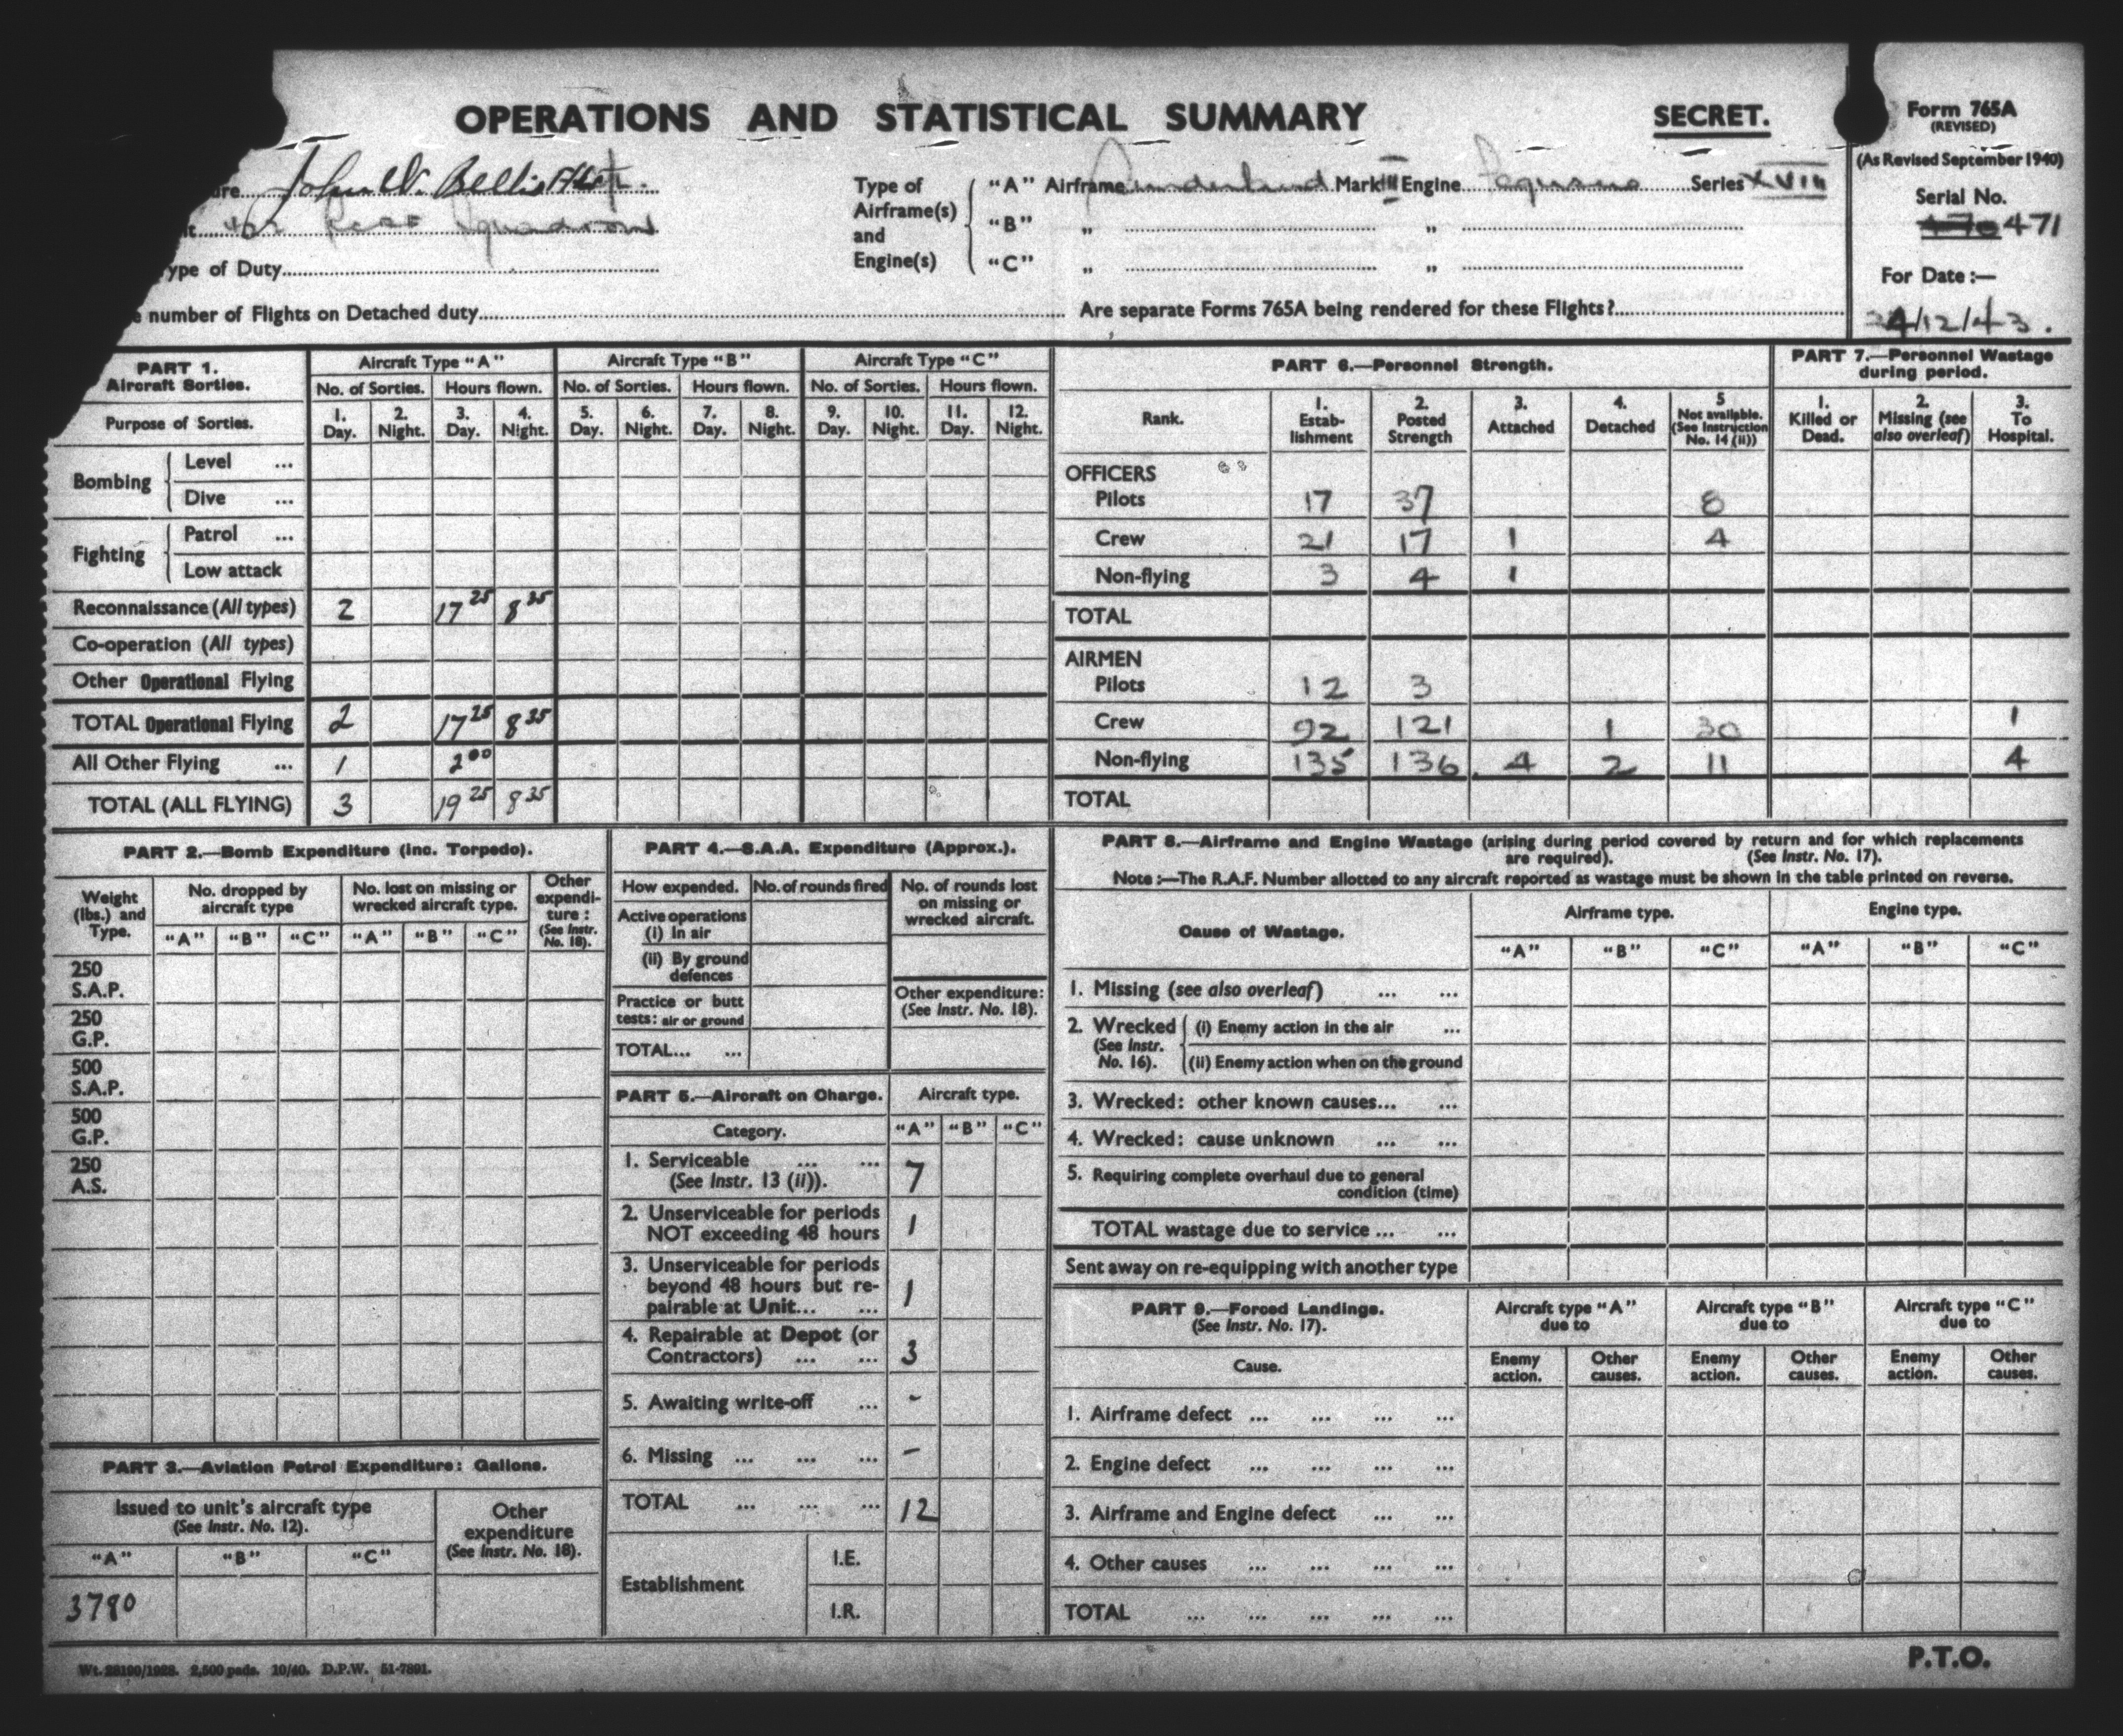 OPERATIONS AND STATISTICAL SUMMARY
SECRET.
Form 765A
(REVISED)
(As Revised September 1940)
Serial No.
471
For Date :—
24/12/43.
re John W. Bellis
t Squadron
ype of Duty
e number of Flights on Detached duty
Type of Airframe(s) and Engine(s)
"A" Airframe Sunderland Mark III Engine Pegasus Series XVIII
"B" " "
"C" " "
Are separate Forms 765A being rendered for these Flights?
PART 1.
Aircraft Sorties.
Aircraft Type "A" Aircraft Type "B" Aircraft Type "C"
No. of Sorties. Hours flown. No. of Sorties. Hours flown. No. of Sorties. Hours flown.
Purpose of Sorties.
1. Day. 2. Night. 3. Day. 4. Night. 5. Day. 6. Night. 7. Day. 8. Night. 9. Day. 10. Night. 11. Day. 12. Night.
Bombing
Level ...
Dive ...
Fighting
Patrol ...
Low attack
Reconnaissance (All types) 2 17 25 8 35
Co-operation (All types)
Other Operational Flying
TOTAL Operational Flying 2 17 25 8 35
All Other Flying ... 1 2 00
TOTAL (ALL FLYING) 3 19 25 8 35
PART 6.—Personnel Strength.
Rank.
1. Estab-lishment
2. Posted Strength
3. Attached
4. Detached
5 Not available. (See Instruction No. 14 (ii))
OFFICERS
Pilots 17 37 8
Crew 21 17 1 4
Non-flying 3 4 1
TOTAL
AIRMEN
Pilots 12 3
Crew 92 121 1 30 1
Non-flying 135 136 4 2 11 4
TOTAL
PART 7.—Personnel Wastage during period.
1. Killed or Dead.
2. Missing (see also overleaf)
3. To Hospital.
PART 2.—Bomb Expenditure (Inc. Torpedo).
Weight (lbs.) and Type.
No. dropped by aircraft type
No. lost on missing or wrecked aircraft type.
Other expendi-ture : (See Instr. No. 18).
"A" "B" "C" "A" "B" "C"
250 S.A.P.
250 G.P.
500 S.A.P.
500 G.P.
250 A.S.
PART 3.—Aviation Petrol Expenditure: Gallons.
Issued to unit's aircraft type
(See Instr. No. 12).
Other expenditure
(See Instr. No. 18).
"A" "B" "C"
3780
PART 4.—S.A.A. Expenditure (Approx.).
How expended. No. of rounds fired
No. of rounds lost on missing or wrecked aircraft.
Active operations
(i) In air
(ii) By ground defences
Practice or butt tests: air or ground
Other expenditure:
(See Instr. No. 18).
TOTAL... ...
PART 5.—Aircraft on Charge. Aircraft type.
Category. "A" "B" "C"
1. Serviceable ... ...
(See Instr. 13 (ii)). 7
2. Unserviceable for periods
NOT exceeding 48 hours 1
3. Unserviceable for periods
beyond 48 hours but re-
pairable at Unit... ... 1
4. Repairable at Depot (or
Contractors) ... ... 3
5. Awaiting write-off ... -
6. Missing ... ... ... -
TOTAL ... ... ... 12
Establishment
I.E.
I.R.
PART 8.—Airframe and Engine Wastage (arising during period covered by return and for which replacements
are required). (See Instr. No. 17).
Note :—The R.A.F. Number allotted to any aircraft reported as wastage must be shown in the table printed on reverse.
Cause of Wastage.
Airframe type. Engine type.
"A" "B" "C" "A" "B" "C"
1. Missing (see also overleaf) ... ...
2. Wrecked (See Instr. No. 16).
(i) Enemy action in the air ...
(ii) Enemy action when on the ground
3. Wrecked: other known causes... ...
4. Wrecked: cause unknown ... ...
5. Requiring complete overhaul due to general
condition (time)
TOTAL wastage due to service ... ...
Sent away on re-equipping with another type
PART 9.—Forced Landings.
(See Instr. No. 17).
Aircraft type "A" due to
Aircraft type "B" due to
Aircraft type "C" due to
Cause.
Enemy action. Other causes. Enemy action. Other causes. Enemy action. Other causes.
1. Airframe defect ... ... ... ...
2. Engine defect ... ... ... ...
3. Airframe and Engine defect ... ...
4. Other causes ... ... ... ...
TOTAL ... ... ... ... ...
Wt. 28190/1928. 2,500 pads. 10/40. D.P.W. 51-7891.
P.T.O.